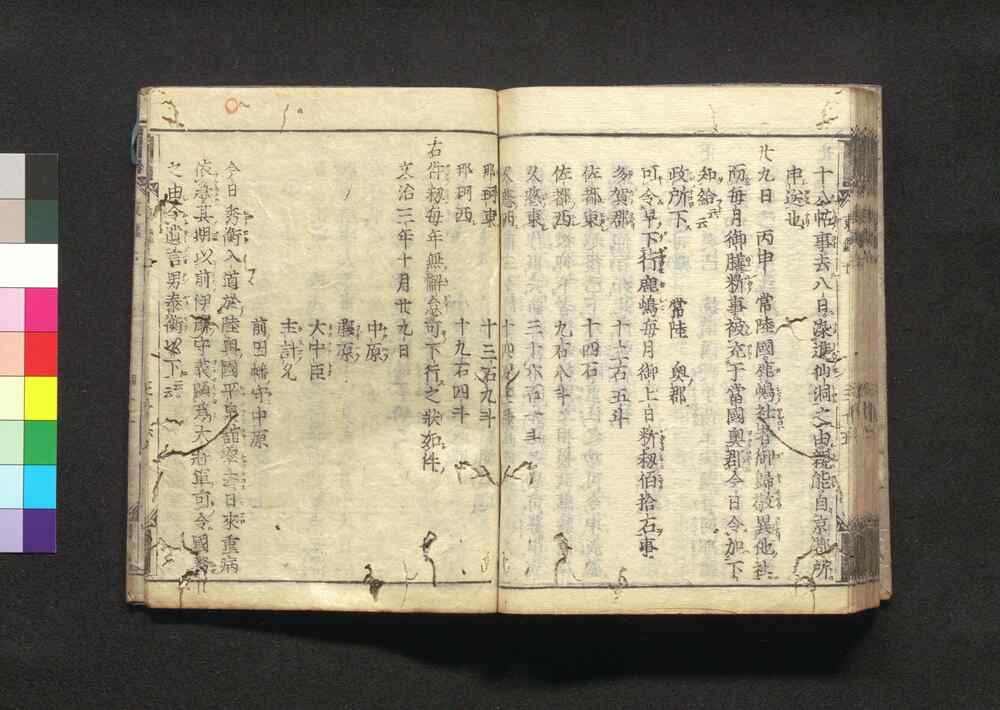 十合帖事去八日染進仙洞之由親能自京都所
申送也
廿九日 丙申 常陸國鹿嶋社者御歸敬異他社
而毎月御膳料事被充于當國奥郡今日令加下
知給云云
政所下 常陸 奥郡
可令早下行鹿嶋毎月御上日料籾佰拾石事
多賀郡 十二石五斗
佐都東 十四石
佐都西 九石八斗
久慈東 三十六石一斗
久慈西
那珂東 十三石九斗
那珂西 十九石四斗
右件籾毎年無懈怠可下行之状如件
文治三年十月廿九日
中原
藤原
大中臣
主計允
前因幡守中原
今日秀衡入道於陸奥國平泉舘卒去日來重病
依恃其期以前伊豫守義顕為大將軍可令國務
之由令遺言男泰衡以下云云